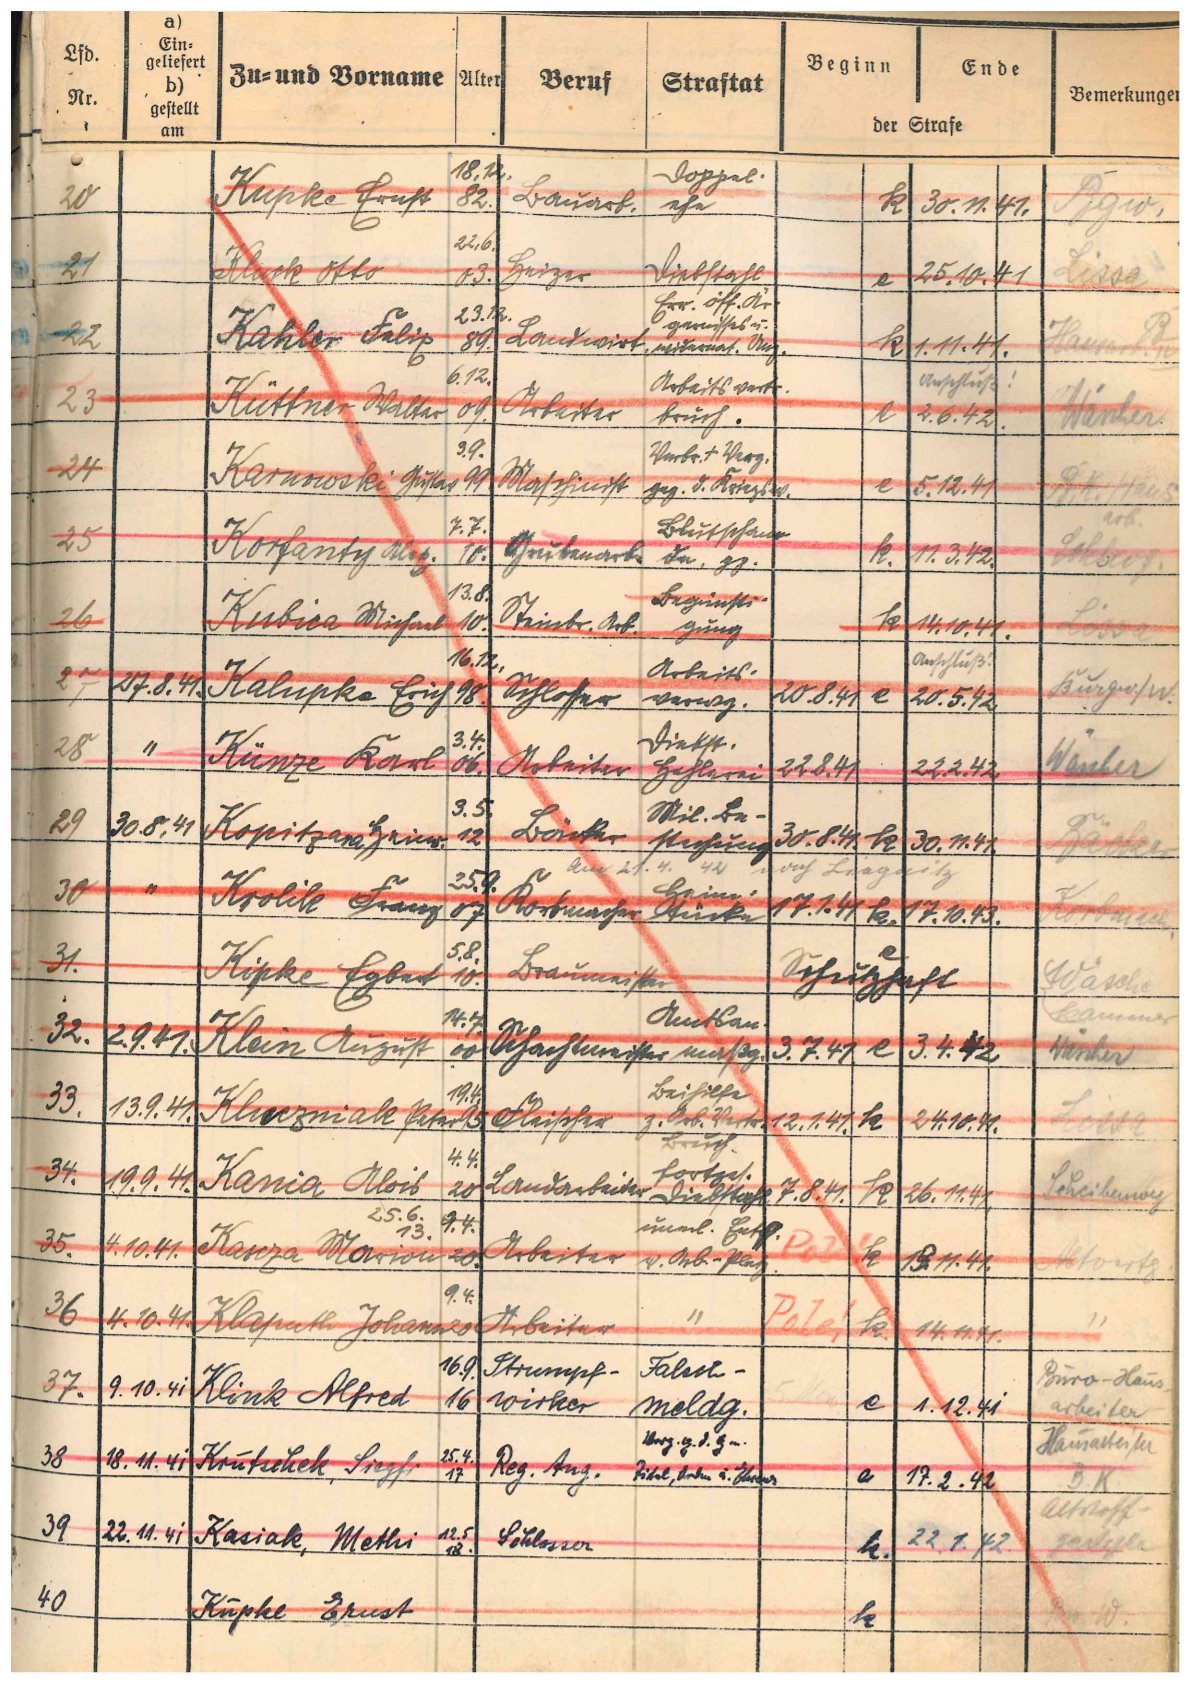 Lfd. Nr. a) Ein= geliefert b) gestellt am Zu= und Vorname Alter Beruf Straftat Beginn Ende der Strafe Bemerkungen
20 Kupke Ernst 18.12. 82. Bauarb. Doppel- ehe k 30.11.41.
21 Kluck Otto 22.6. 03. Heizer Diebstahl e 25.10.41 Lissa
22 Kahler Felix 23.12. 89. Landwirt Err. öff. Är- gernisses u. k 1.11.41.
23 Küttner Walter 6.12. 09. Arbeiter Arbeitsvertr. bruch. e Anschluß! 2.6.42. Wäscher
24 Karnowski Gustav 3.9. 99 Maschinist Verbr. + Verg. geg. d. Kriegsw. e 5.12.41
25 Korfanty Alex. 7.7. 10. Grubenarb. Blutschan- de k. 11.3.42.
26 Kubica Michael 13.8. 10. Steinbr. Arb. Begünsti- gung k 14.10.41. Lissa
27 27.8.41. Kalupke Erich 16.12. 98. Schlosser Arbeits- verwg. 20.8.41 e Anschluß! 20.5.42
28 " Künze Karl 3.4. 06. Arbeiter Diebst. Hehlerei 22.8.41 22.2.42 Wäscher
29 30.8.41 Kopitzara, Heinr. 3.5. 12 Bäcker Mil. Be- stechung 30.8.41. k 30.11.41.
am 21.4.42 nach Liegnitz
30 " Krolik Franz 25.9. 07 Korbmacher Heim- tücke 17.1.41 k. 17.10.43.
31. Kipke Egbert 5.8. 10. Braumeister Schutzhaft e Wäsche Kammer
32. 2.9.41. Klein August 14.7. 00 Schachtmeister Amtsan- maßg. 3.7.41 e 3.4.42 Wäscher
33. 13.9.41. Kluczniak Peter 19.4. Fleischer Beihilfe z. Arb. Vertr. Bruch. 12.1.41. k 24.10.41. Lissa
34. 19.9.41. Kania Alois 4.4. 20 Landarbeiter fortges. Diebstahl 7.8.41. k. 26.11.41.
35. 4.10.41. Kascza Marion 25.6. 13. 9.4. 20. Arbeiter unerl. Entf. v. Arb.-Platz. Pole! k 13.11.41.
36 4.10.41. Klaputh Johann 9.4. 20 Arbeiter " Pole! k. 14.11.41. "
37. 9.10.41 Klink Alfred 16.9. 16 Strumpf- wirker Falsch- meldg. e 1.12.41 Büro-Haus- arbeiter
38 18.11.41 Krutschek, Siegfr. 25.4. 17 Reg. Ang. Verg. g. d. G. Titel, Orden u. Ehrenz. a 17.2.42 Hausarbeiter B.K
39 22.11.41 Kasiak, Methi 12.5 18. Schlosser k. 22.1.42 Altstoff-
40 Kupke Ernst k